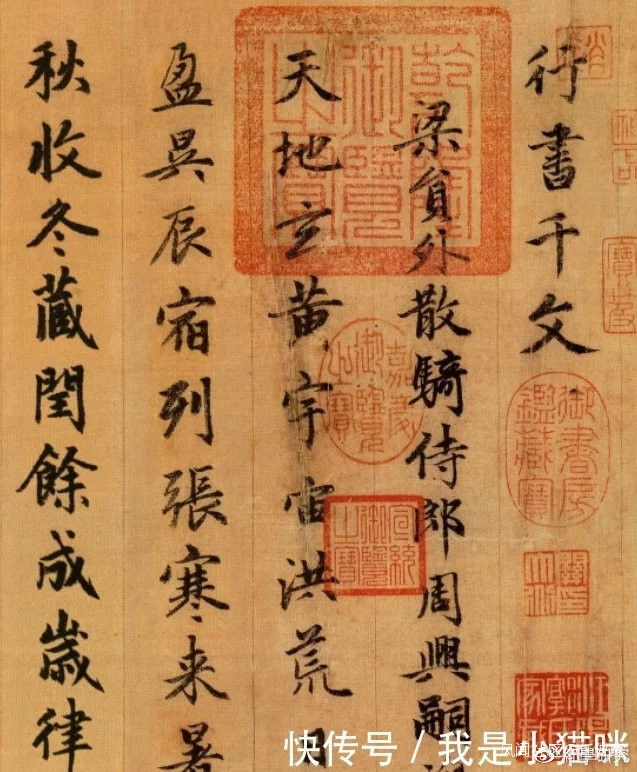 行書千文
梁貟外散騎侍郎周興嗣
天地玄黄宇宙洪荒
盈昃辰宿列張寒来暑
秋收冬藏閏餘成歲律
乾隆御覽之寶
嘉慶御覽之寶
宣統御覽之寶
御書房鑑藏寶
快传号 / 我是小猫咪